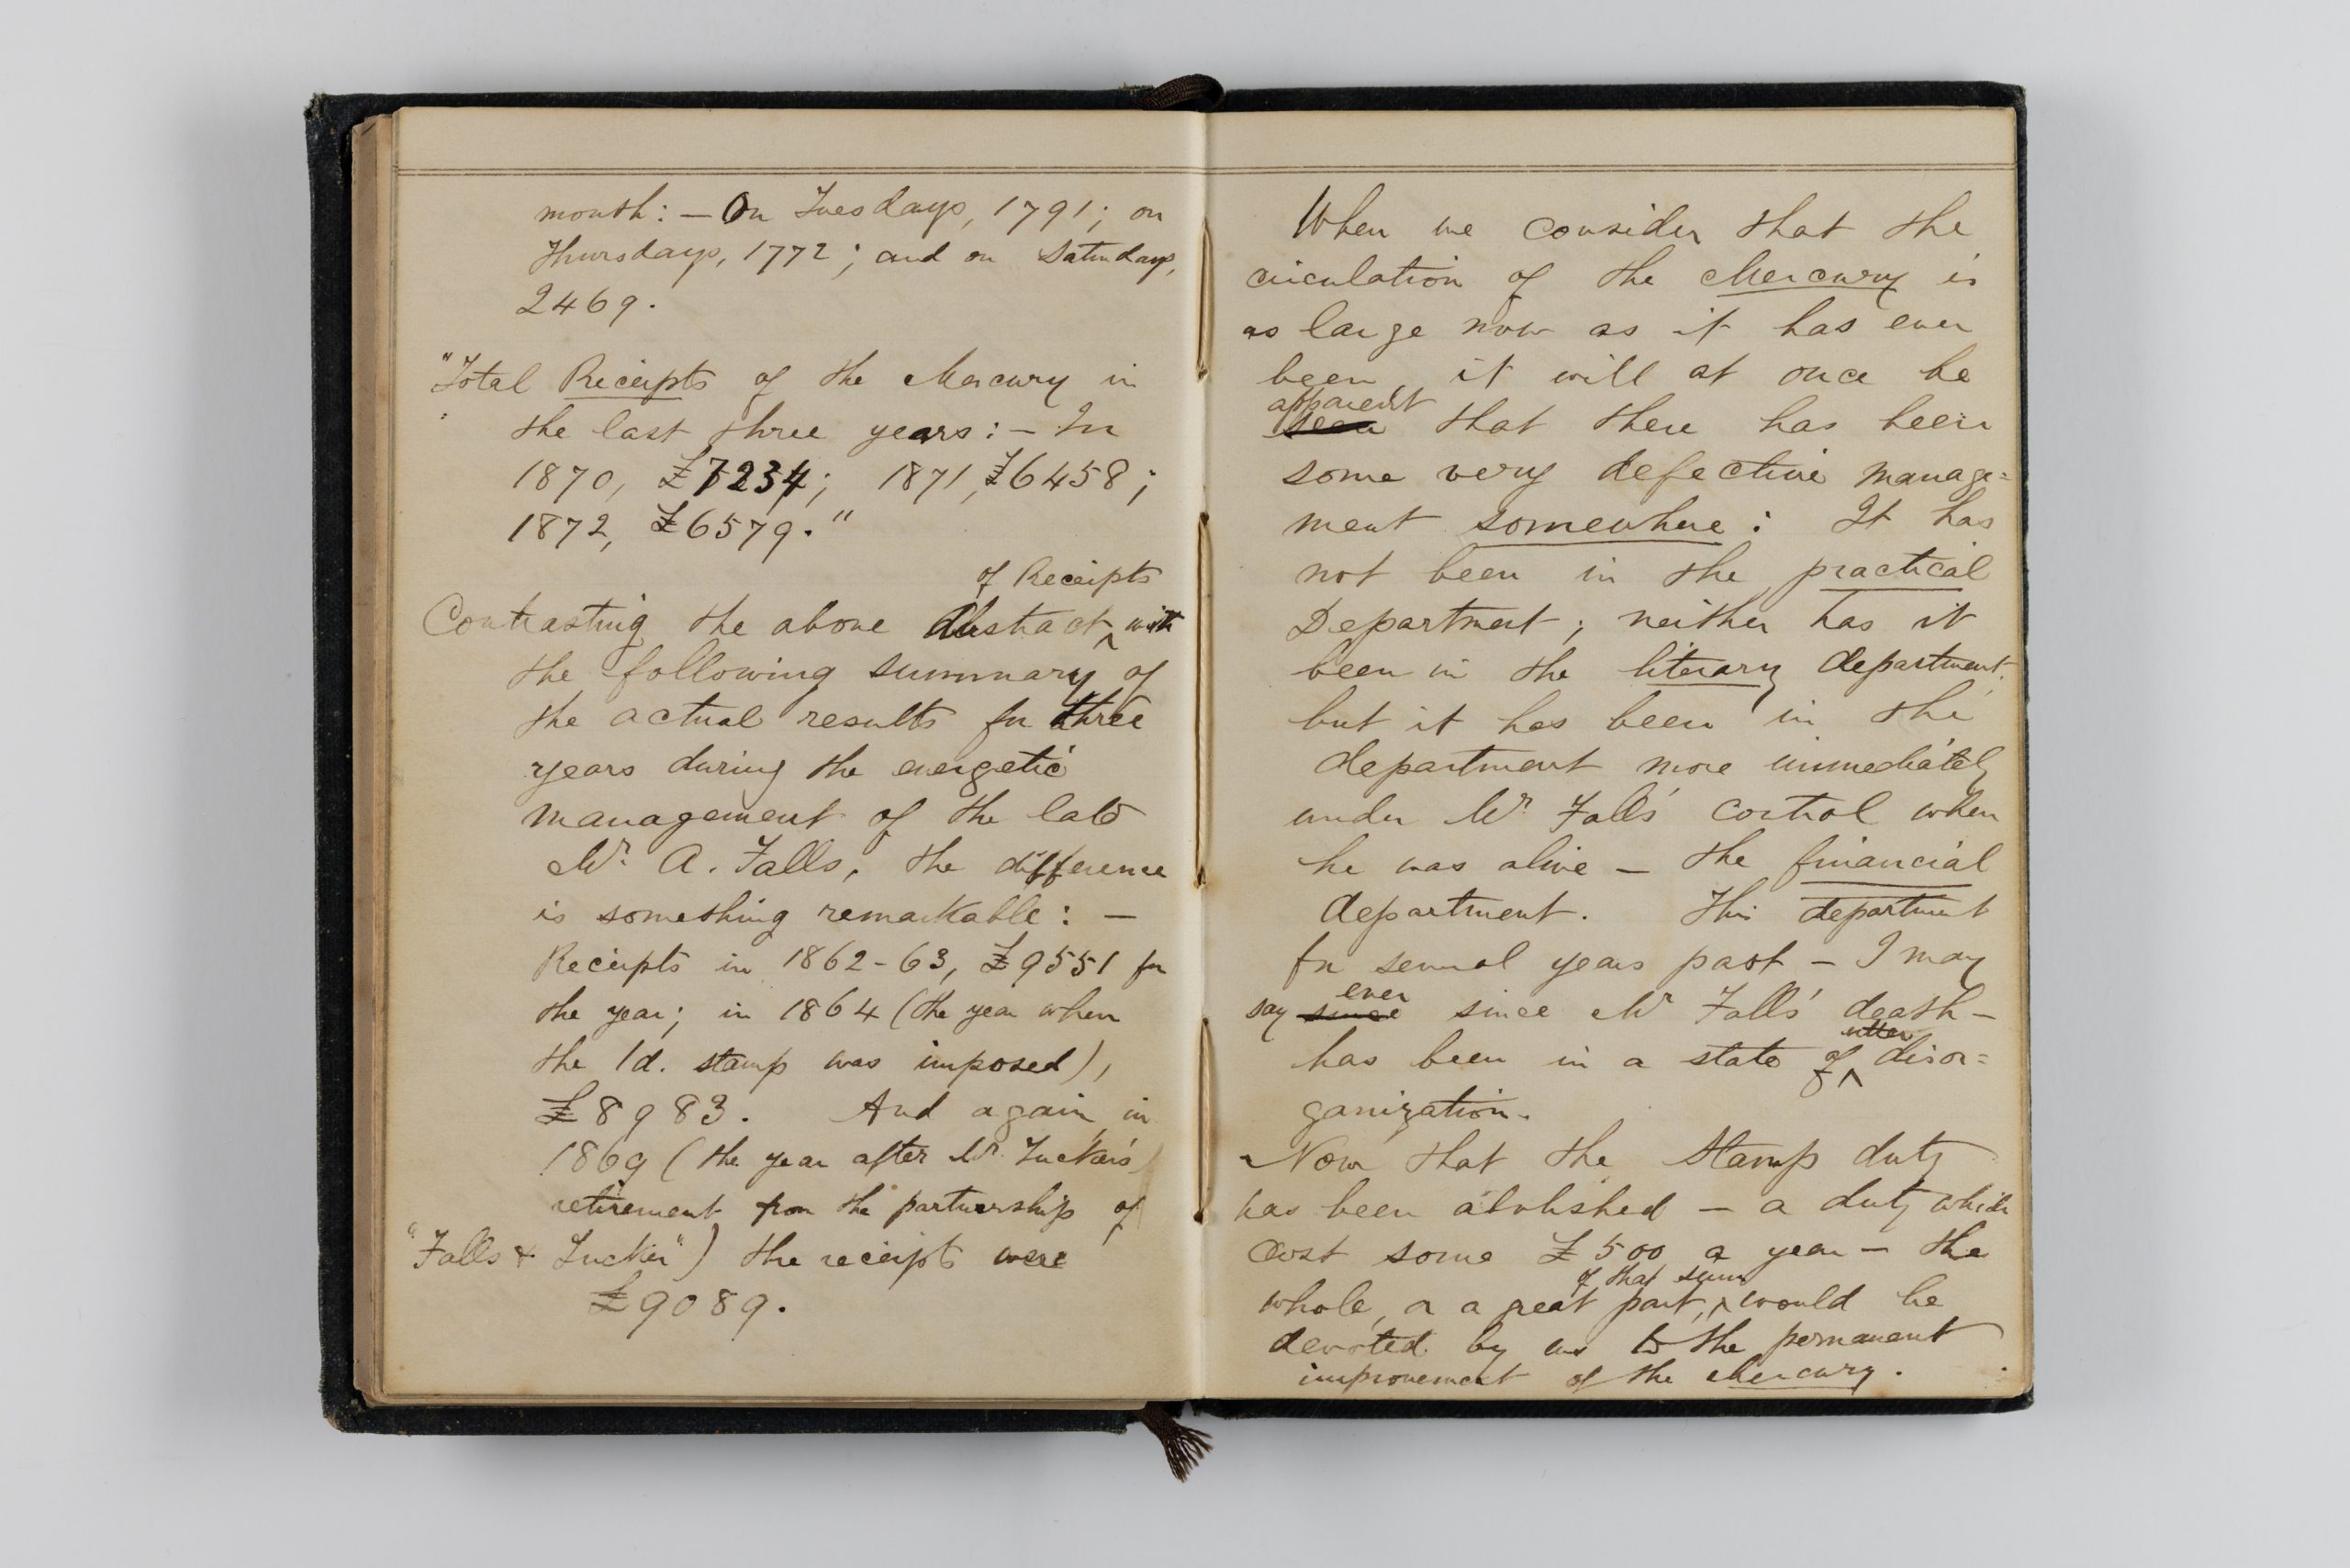 month: — On Tuesdays, 1791; on
Thursdays, 1772; and on Saturdays,
2469.
"Total Receipts of the Mercury in
the last three years: — In
1870, £7234; 1871, £6458;
1872, £6579."
of Receipts
Contrasting the above Abstract ^ with
the following summary of
the actual results for three
years during the energetic
management of the late
Mr. A. Falls, the difference
is something remarkable: —
Receipts in 1862-63, £9551 for
the year; in 1864 (the year when
the 1d. stamp was imposed),
£8983. And again, in
1869 (the year after Mr. Tucker's
retirement from the partnership of
"Falls & Tucker") the receipts were
£9089.
When we consider that the
circulation of the Mercury is
as large now as it has ever
been, it will at once be
apparent
seen that there has been
some very defective manage=
ment somewhere: It has
not been in the practical
Department; neither has it
been in the literary department;
but it has been in the
department more immediately
under Mr Falls' control when
he was alive — the financial
department. This department
for several years past — I may
ever
say since since Mr Falls' death —
utter
has been in a state of ^ disor=
ganization.
Now that the Stamp duty
has been abolished — a duty which
cost some £500 a year — the
of that sum
whole, or a great part, ^ would be
devoted by us to the permanent
improvement of the Mercury.